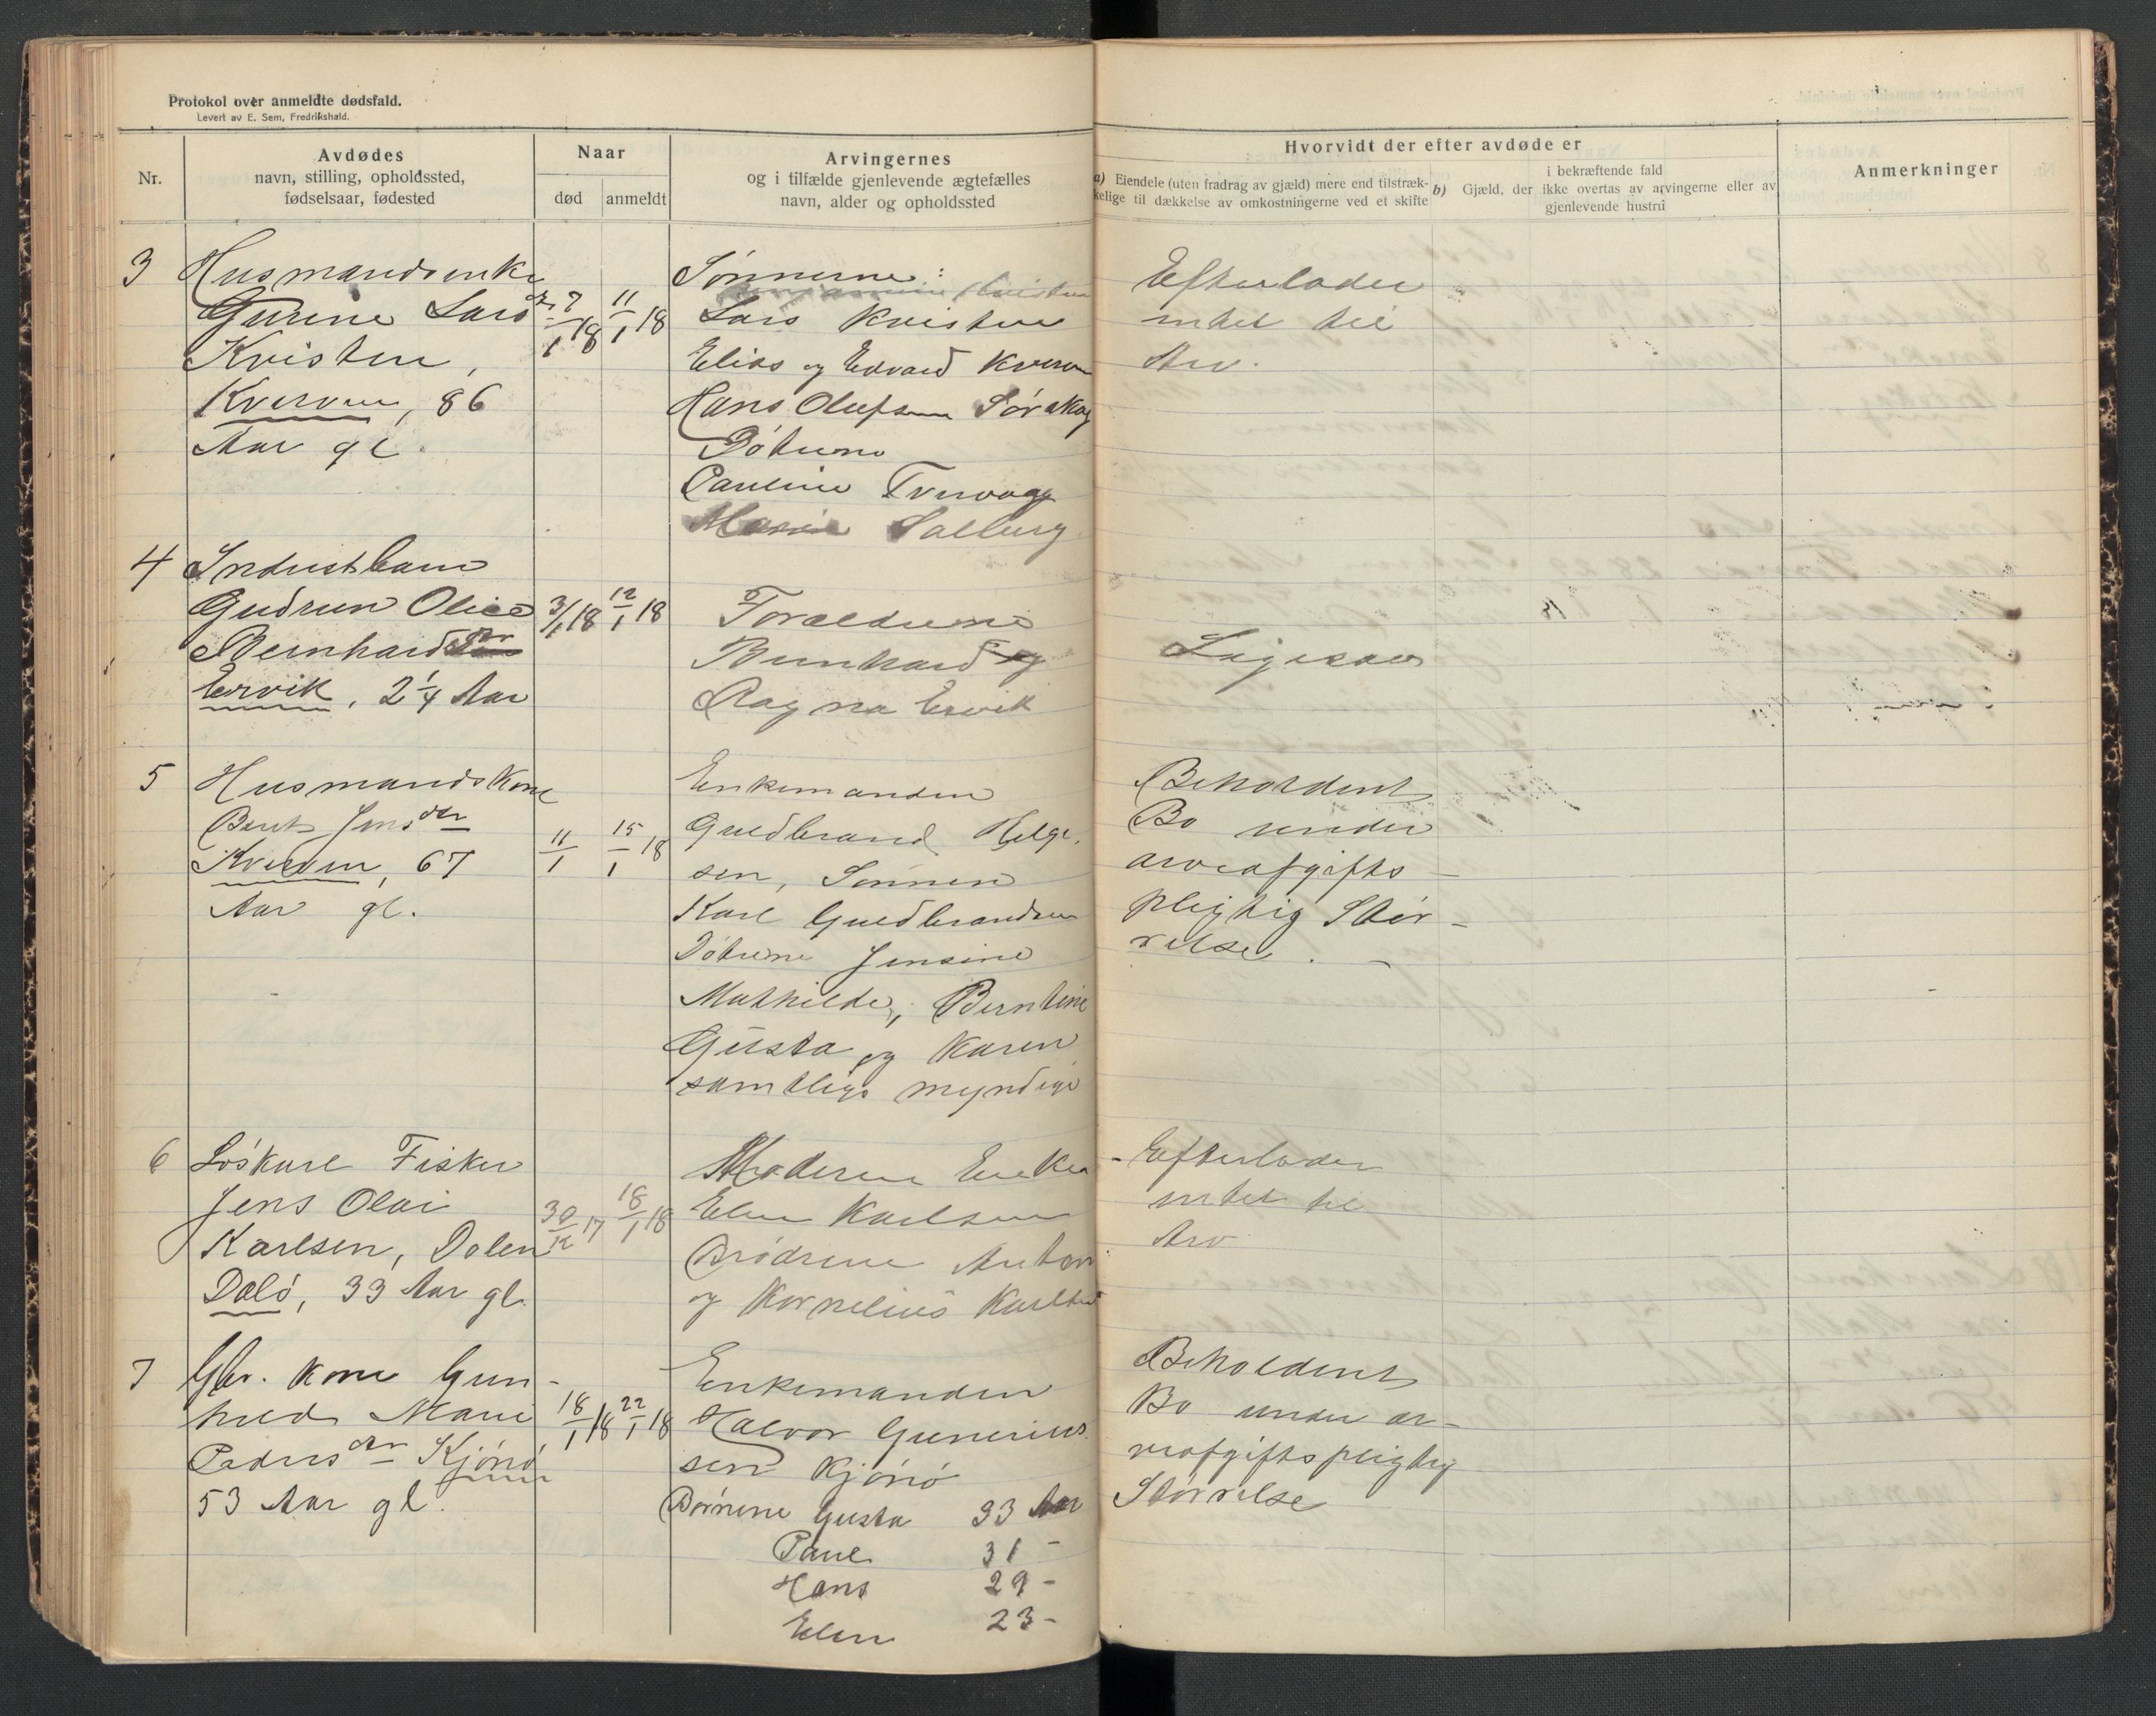 Protokol over anmeldte dødsfald.
Levert av E. Sem, Fredrikshald.
Nr.
Avdødes
navn, stilling, opholdssted,
fødselsaar, fødested
Naar
død
anmeldt
Arvingernes
og i tilfælde gjenlevende ægtefælles
navn, alder og opholdssted
Hvorvidt der efter avdøde er
a) Eiendele (uten fradrag av gjæld) mere end tilstræk-
kelige til dækkelse av omkostningerne ved et skifte
b) Gjæld, der
i bekræftende fald
ikke overtas av arvingerne eller av
gjenlevende hustru
Anmerkninger
3
Husmandsenke
Gurine Larsdr
Kvisten,
Kverven, 86
Aar gl.
7/1 18
11/1 18
Sønnerne:
Lars Kvisten
Elias og Edvard Kverven
Hans Olufsen Sørskag
Døtrene
Pauline Tvervaag
Marie Salberg
Efterlader
intet til
Arv.
4
Industbarn
Gudrun Olise
Bernhardsdr
Ervik, 2 1/4 Aar
3/1 18
12/1 18
Forældrene
Bernhard og
Ragna Ervik
Ligesaa
5
Husmandskone
Berit Jensdtr
Kverven, 67
Aar gl.
11/1
15/1 18
Enkemanden
Guldbrand Helge-
sen, Sønnen
Karl Guldbrandsen
Døtrene Jensine
Mathilde, Berntine
Gusta og Karen
samtlige myndige
Beholdent
Bo under
arveafgifts-
pligtig Stør-
relse. -
6
Løskarl Fisker
Jens Olai
Karlsen, Dalen
Dolø, 33 Aar gl.
30/12 17
18/1 18
Moderen Enke
Elen Karlsen
Brødrene Anton
og Kornelius Karlsen
- Efterlader
intet til
Arv
7
Gbr. kone Gun-
hild Marie
Pedersdtr Kjønø,
53 Aar gl.
18/1 18
22/1 18
Enkemanden
Halvor Gunerius-
sen Kjønø
Børnene Gusta 33 Aar
Paul 31 -
Hans 29 -
Elen 23 -
Beholdent
Bo under ar-
veafgiftspligtig
Størrelse